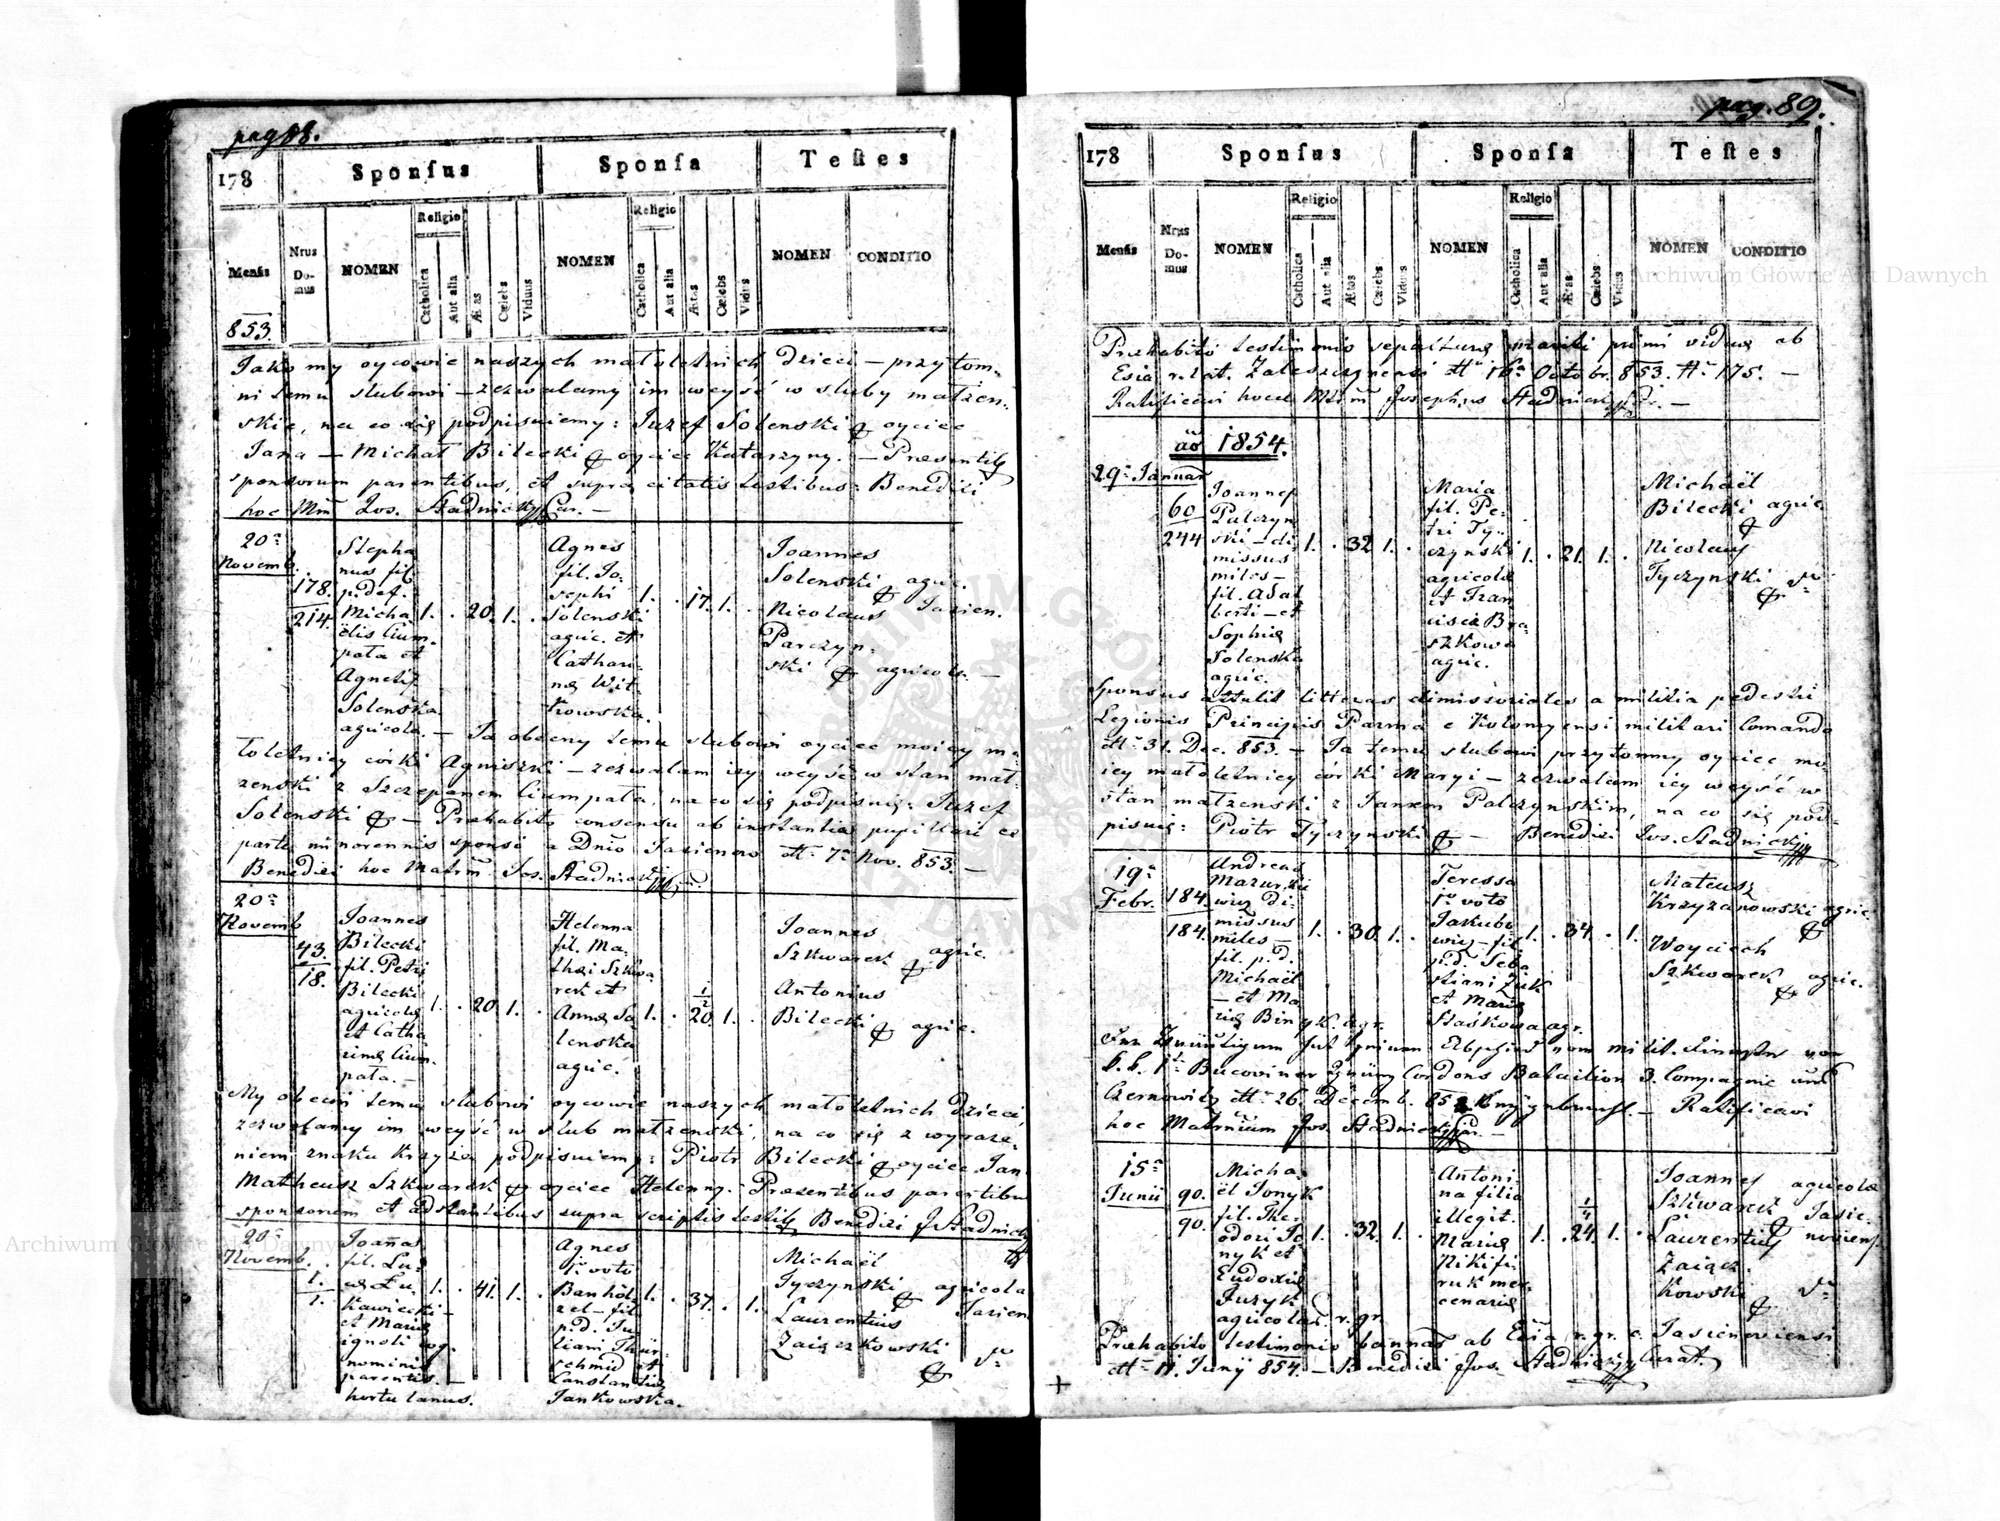 pag 88.
178 Sponſus Sponſa Teſtes
Menſis Nrus Domus NOMEN Religio Catholica Aut alia Ætas Cœlebs Viduus NOMEN Religio Catholica Aut alia Ætas Cœlebs Vidua NOMEN CONDITIO
853.
Jako my oycowie naszych małoletnich dzieci – przytom-
ni temu slubowi – zezwalamy im weyść w sluby małzen-
skie, na co się podpisuiemy: Juzef Solenski oyciec
Jana – Michał Bilecki oyciec Katarzyny. – Presentibus
sponsorum parentibus, et supra citatis testibus: Benedixi
hoc Mm Jos. Stadnicki Par. –
20a
Novemb.
178.
214.
Stepha
nus fil.
p. def.
Micha
ëlis Cium-
pała et
Agnetis
Solenska
agricola. –
1. 20. 1.
Agnes
fil. Jo-
sephi
Solenski
agric. et
Cathari-
næ Wit-
kowska.
1. 17. 1.
Joannes
Solenski agric.
Nicolaus Jasien.
Parczyn-
ski agricola. –
Ja obecny temu slubowi oyciec moiey ma-
łoletniey córki Agniszki – zezwalam iey weyść w stan mał-
zenski z Szczepanem Ciumpała, na co się podpisuię: Juzef
Solenski – Præhabito consensu ab instantia pupillari ex
parte minorennis sponsi a Dnio Jasienow dtto 7a Nov. 853. –
Benedixi hoc Matrm Jos. Stadnicki
20a
Novemb
43.
18.
Joannes
Bilecki
fil. Petri
Bilecki
agricola
et Catha
rinæ Cium-
pała. –
1. 20. 1.
Helenna
fil. Ma-
thæi Szkwa
rek et
Annæ So-
lenska
agric.
1. 20 1/2 1.
Joannes
Szkwarek agric.
Antonius
Bilecki agric.
My obecni temu slubowi oycowie naszych małoletnich dzieci,
zezwalamy im weyść w slub małzenski, na co się z wyraze-
niem znaku krzyża podpisuiemy: Piotr Bilecki oyciec Jan
Matheusz Szkwarek oyciec Helenny. – Præsentibus parentibus
sponsorum et adstantibus supra scriptis testibus Benedixi J. Stadnicki
20a
Novemb.
1.
1.
Joannes
fil. Lu-
cæ Łu-
kawiecki –
et Mariæ
ignoti cog-
nominis
parentis. –
hortulanus.
1. 41. 1.
Agnes
1o voto
Banhöl
zel – fil.
p.d. Ju-
liani Thür-
schmid et
Constantiæ
Jankowska.
1. 37. 1.
Michaël
Tyczynski agricola
Laurentius Jasien
Zaiączkowski
pag. 89.
178 Sponſus Sponſa Teſtes
Menſis Nrus Domus NOMEN Religio Catholica Aut alia Ætas Cœlebs Viduus NOMEN Religio Catholica Aut alia Ætas Cœlebs Vidua NOMEN CONDITIO
Præhabito testimonio sepulturæ mariti primi viduæ ab
Esia r. lat. Zaleszczynensi dtto 16a Octobr. 853. Nr 175. –
Ratificavi hocce Mtrm Josephus Stadnicki –
ao 1854.
29a Januar
60
244
Joannes
Palczyn
ski – di-
missus
miles –
fil. Adal
berti – et
Sophiæ
Solenska
agric.
1. 32. 1.
Maria
fil. Pe-
tri Ty-
czynski
agricola
et Fran
ciscæ Bra-
szkowa
agric.
1. 21. 1.
Michaël
Bilecki agric.
Nicolaus
Tyczynski
Sponsus attulit litteras dimissoriales a militia pedestri
Legionis Principis Parma e Kolomyensi militari Comando
dtto 31. Dec. 853. – Ja temu slubowi przytomny oyciec mo-
iey małoletniey córki Maryi – zezwalam iey weyść w
stan małzenski z Janem Palczynskim, na co się pod-
pisuię: Piotr Tyczynski – Benedixi Jos. Stadnicki
19a
Febr.
184.
184.
Andreas
Mazurkie
wicz di-
missus
miles –
fil. p.d.
Michaël
– et Ma
riæ Binyk. agr.
1. 30. 1.
Teressa
1o voto
Jakubo
wicz – fil.
p.d. Seba
stiani Zuk
et Mariæ
Staśkowa agr.
1. 34. 1.
Mateusz
Krzyzanowski agric.
Woyciech
Szkwarek agric.
k. k. 1t Bucoviner Cordons Batailion 3. Compagnie
Czernowitz dtto 26. Decemb. – Ratificavi
hoc Matrimium Jos. Stadnicki Par. –
15a
Junii
90.
90.
Micha-
ël Jonyk
fil. The-
odori Jo
nyk et
Eudoxiæ
Juzyk
agricola r. gr.
1. 32. 1.
Antoni-
na filia
illegit.
Mariæ
Nikifi-
ruk mer-
cenariæ
1. 24 1/4 1.
Joannes agricola
Szkwarek Jasie-
Laurentius noviens.
Zaiącz-
kowski
Præhabito testimonio bannor ab Esia r. gr. c. Jasienoviensi
dtto 11. Junÿ 854. – Benedixi Jos. Stadnicki Curat.
Archiwum Główne Akt Dawnych
Archiwum Główne Akt Dawnych
ARCHIWUM GŁÓWNE AKT DAWNYCH